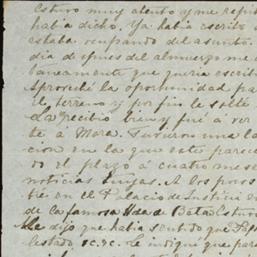 Estuvo muy atento y me repi
había dicho. Ya había escrito
estaba ocupando del asunto.
día despues del almuerzo me
baneamente que queria escrib
Aproveché la oportunidad pa
el terreno y por fin le solté
La recibió bien y fué á ver
te á Mora. Tuvieron una la
cion en la que este parece
do el plazo á cuatro mese
noticias tuyas. A los pocos
tré en el Palacio de Justicia
de la famosa Hda de Bata. Estuvo
Me dijo que había sentido que Pep
listado &c. &c. Le indiqué que par